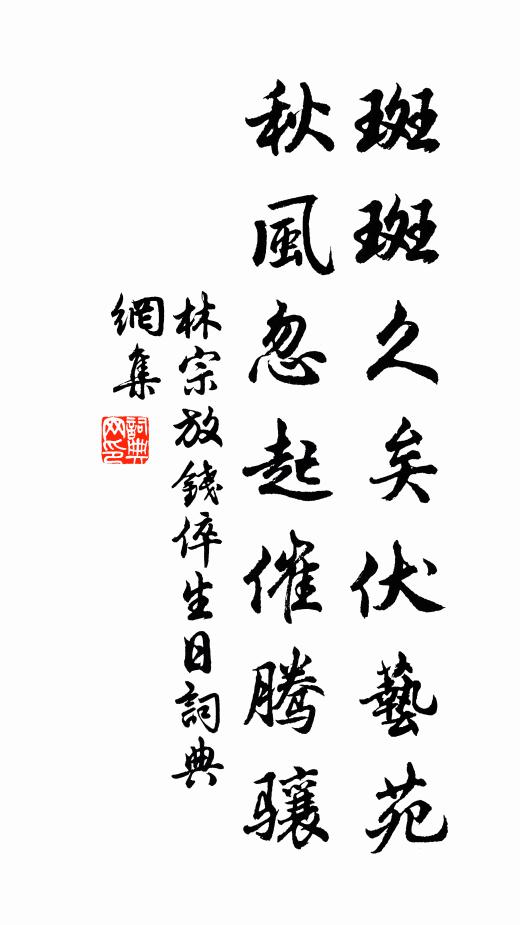 斑斑久矣伏藝苑
秋風忽起催騰驤
林宗放錢倅生日詞典
網集
詞典
网印